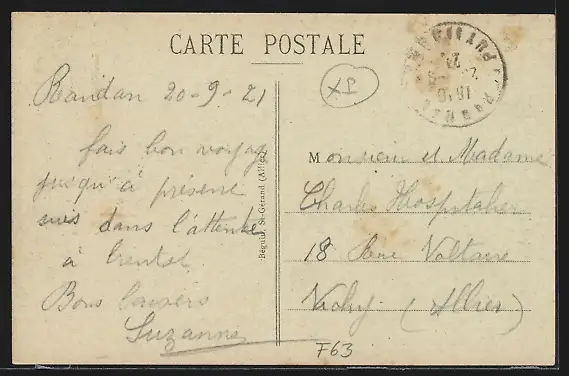 CARTE POSTALE
Randan 20-9-21
fais bon voyage
jusqu'à présent
suis dans l'attente
à bientot
Bons baisers
Suzanne
Béguin, St-Gérand (Allier)
Monsieur et Madame
Charles Hospitalier
18 Rue Voltaire
Vichy (Allier)
F63